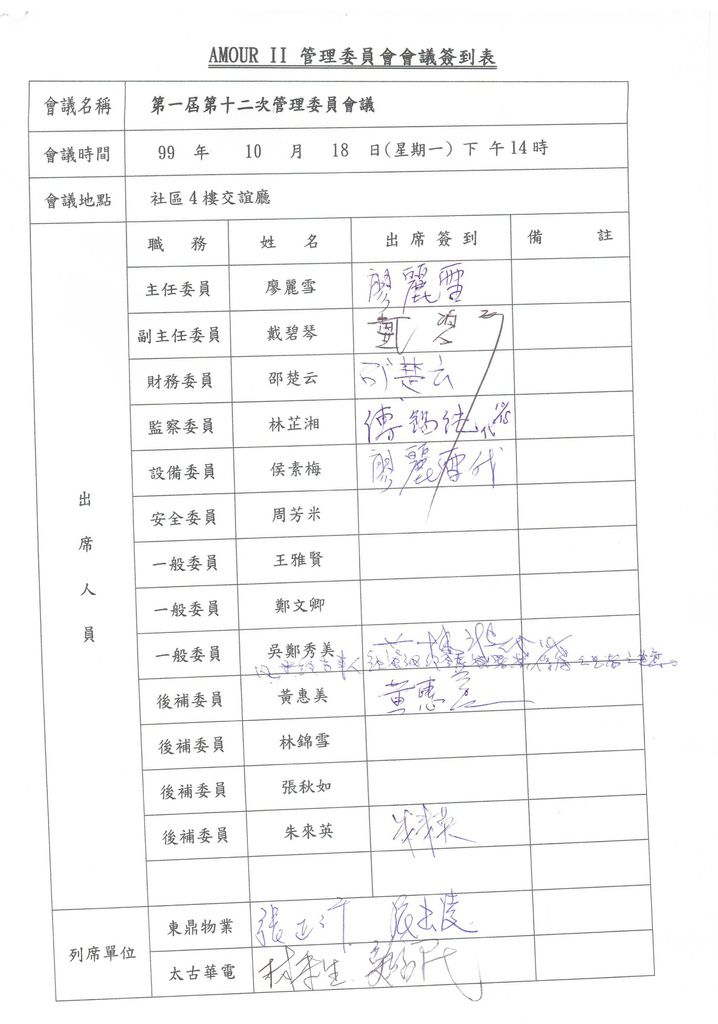 AMOUR II 管理委員會會議簽到表
會議名稱 第一屆第十二次管理委員會議
會議時間 99 年 10 月 18 日(星期一) 下 午14時
會議地點 社區4樓交誼廳
出席人員
職 務 姓 名 出 席 簽 到 備 註
主任委員 廖麗雪 廖麗雪
副主任委員 戴碧琴 戴
財務委員 邵楚云 邵楚云
監察委員 林芷湘 傅錫 代 10/18
設備委員 侯素梅 廖麗雪代
安全委員 周芳米
一般委員 王雅賢
一般委員 鄭文卿
一般委員 吳鄭秀美
後補委員 黃惠美 黃惠美
後補委員 林錦雪
後補委員 張秋如
後補委員 朱來英
列席單位
東鼎物業 張
太古華電 林 代